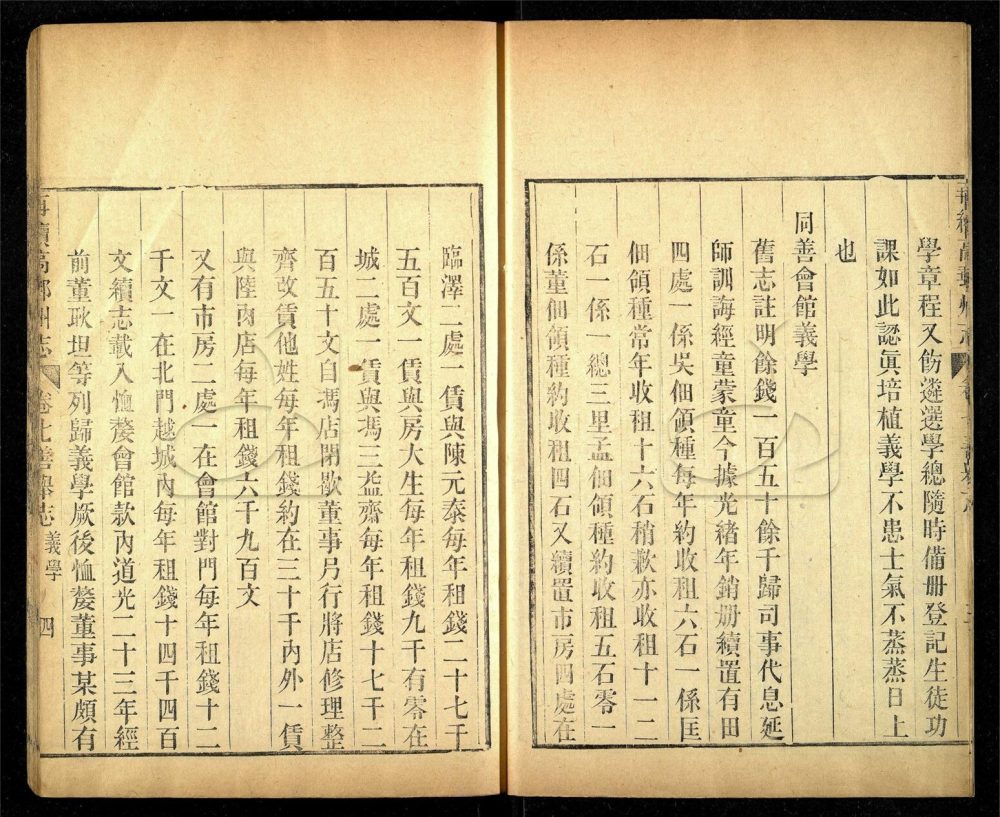 學章程又飭遴選學總隨時備册登記生徒功
課如此認眞培植義學不患士氣不蒸蒸日上
也
同善會館義學
舊志註明餘錢一百五十餘千歸司事代息延
師訓誨經童蒙童今據光緒年銷册續置有田
四處一係吳佃領種每年約收租六石一係匡
佃領種常年收租十六石稍歉亦收租十一二
石一係一總三里孟佃領種約收租五石零一
係董佃領種約收租四石又續置市房四處在
臨澤二處一賃與陳元泰每年租錢二十七千
五百文一賃與房大生每年租錢九千有零在
城二處一賃與馮三益齋每年租錢十七千二
百五十文自馮店閉歇董事另行將店修理整
齊改賃他姓每年租錢約在三十千內外一賃
與陸肉店每年租錢六千九百文
又有市房二處一在會館對門每年租錢十二
千文一在北門越城內每年租錢十四千四百
文續志載入恤嫠會館款內道光二十三年經
前董耿坦等列歸義學厥後恤嫠董事某頗有
再續高郵州志 卷七善舉志 義學 四